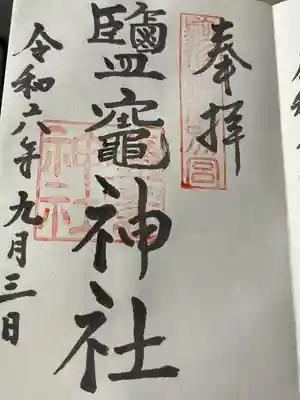 奉拝
鹽竈神社
令和六年九月三日